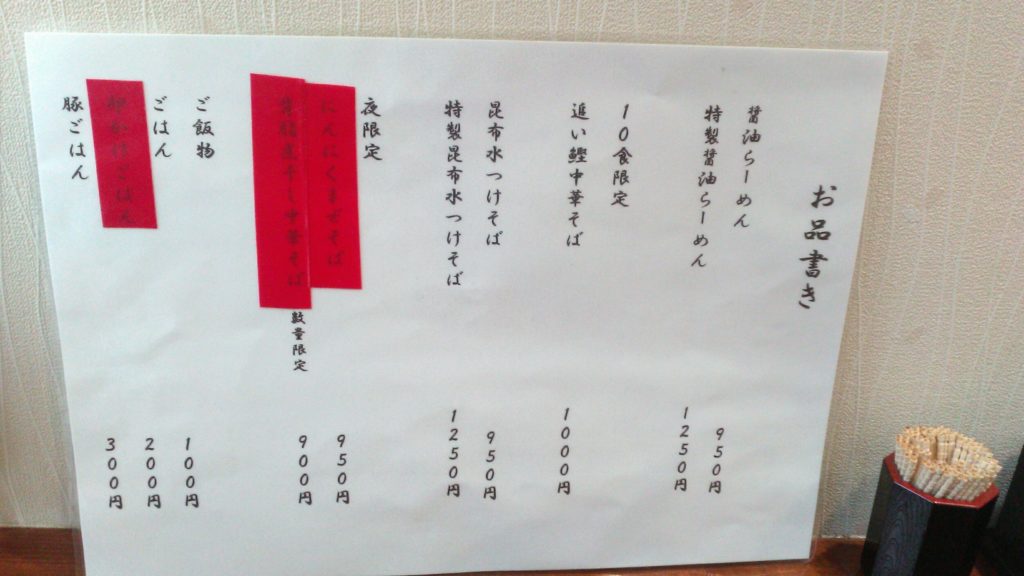 お品書き
醤油らーめん 950円
特製醤油らーめん 1250円
10食限定
追い鰹中華そば 1000円
昆布水つけそば 950円
特製昆布水つけそば 1250円
夜限定
にんにくまぜそば 950円
背脂煮干し中華そば 数量限定 900円
ご飯物
ごはん 100円
ごはん 200円
豚ごはん 300円